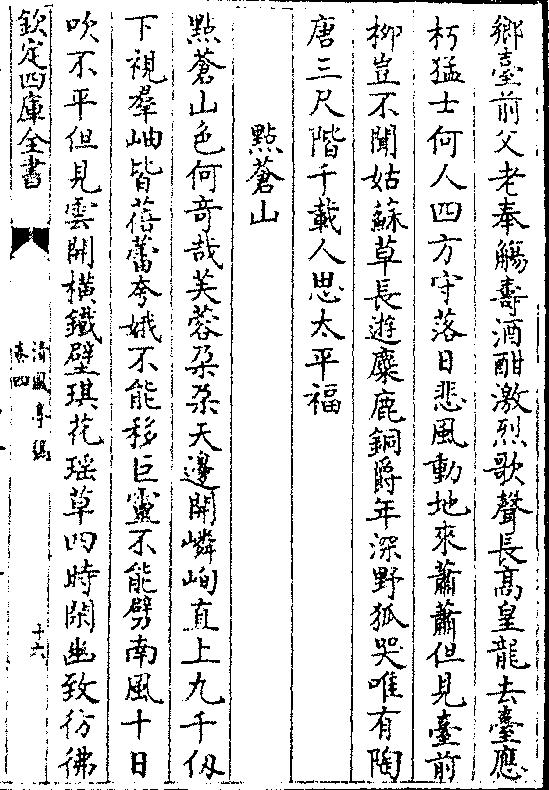 鄉臺前父老奉觴壽酒酣激烈歌聲長高皇龍去臺應
朽猛士何人四方守落日悲風動地來蕭蕭但見臺前
柳豈不聞姑蘇草長遊麋鹿銅爵年深野狐哭唯有陶
唐三尺階千載人思太平福
點蒼山
點蒼山色何奇哉芙蓉朶朶天邊開嶙峋直上九千仭
下視羣岫皆蓓蕾夸娥不能移巨靈不能劈南風十日
吹不平但見雲開橫鐵壁琪花瑶草四時閑幽致彷彿
欽定四庫全書
清風亭稿
卷四
十六